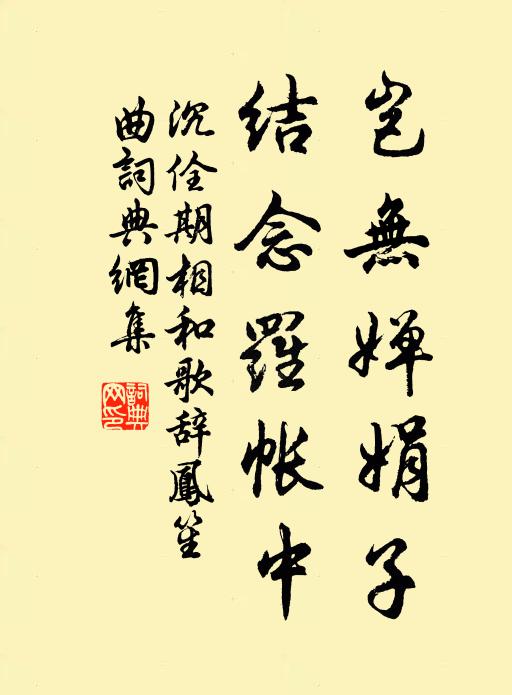 豈無嬋娟子
結念羅帳中
沉佺期相和歌辞鳳笙
曲詞典網集
詞典
网印